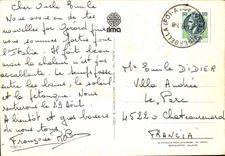 Cher Oncle Emile
Nous avons eu de tes
nouvelles par Gérard qui
nous sommes partis pour
l'Italie. Il fait beau
mais la chaleur n'est pas
accablante. Le temps passe
entre les bains, le soleil
et la pétanque. Nous
rentrons le 29 août.
A bientôt et gros baisers
de nous tous.
Françoise
rima
Emile DIDIER
Villa Andrée
Le Parc
45220 Chateaurenard
FRANCIA